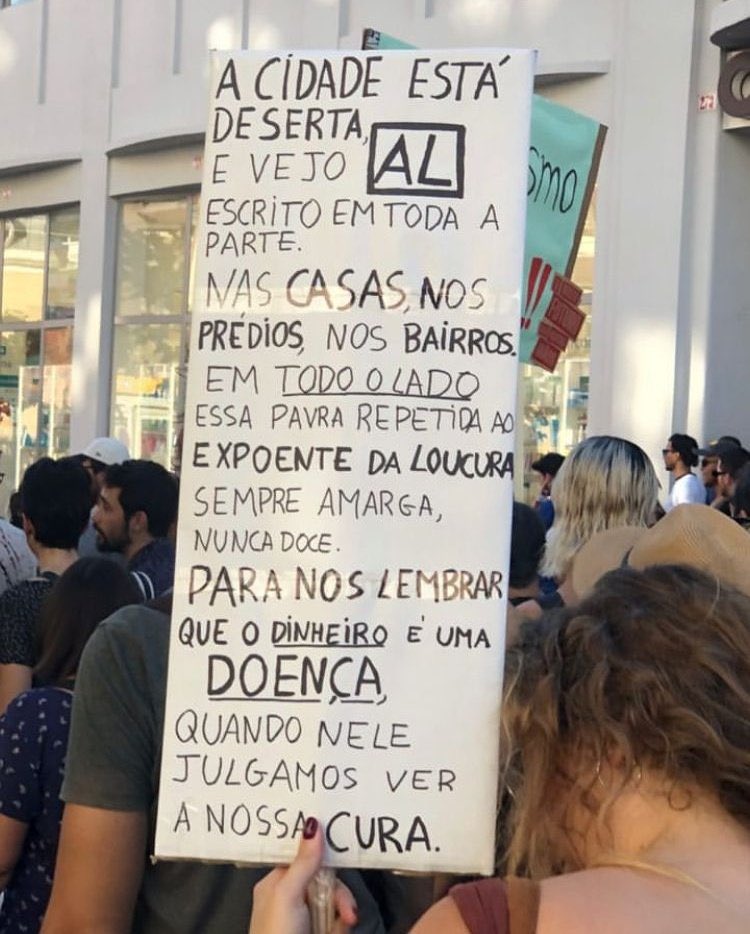 A CIDADE ESTÁ
DESERTA,
E VEJO AL
ESCRITO EM TODA A
PARTE.
NAS CASAS, NOS
PRÉDIOS, NOS BAIRROS.
EM TODO O LADO
ESSA PAVRA REPETIDA AO
EXPOENTE DA LOUCURA
SEMPRE AMARGA,
NUNCA DOCE.
PARA NOS LEMBRAR
QUE O DINHEIRO É UMA
DOENÇA,
QUANDO NELE
JULGAMOS VER
A NOSSA CURA.
SMO
!!